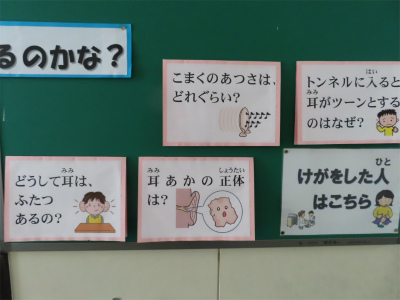 るのかな？
こまくのあつさは、
どれぐらい？
トンネルに入ると
はい
耳がツーンとする
みみ
のはなぜ？
どうして耳は、
みみ
ふたつ
あるの？
耳あかの正体
みみ
しょうたい
は？
けがをした人
ひと
はこちら